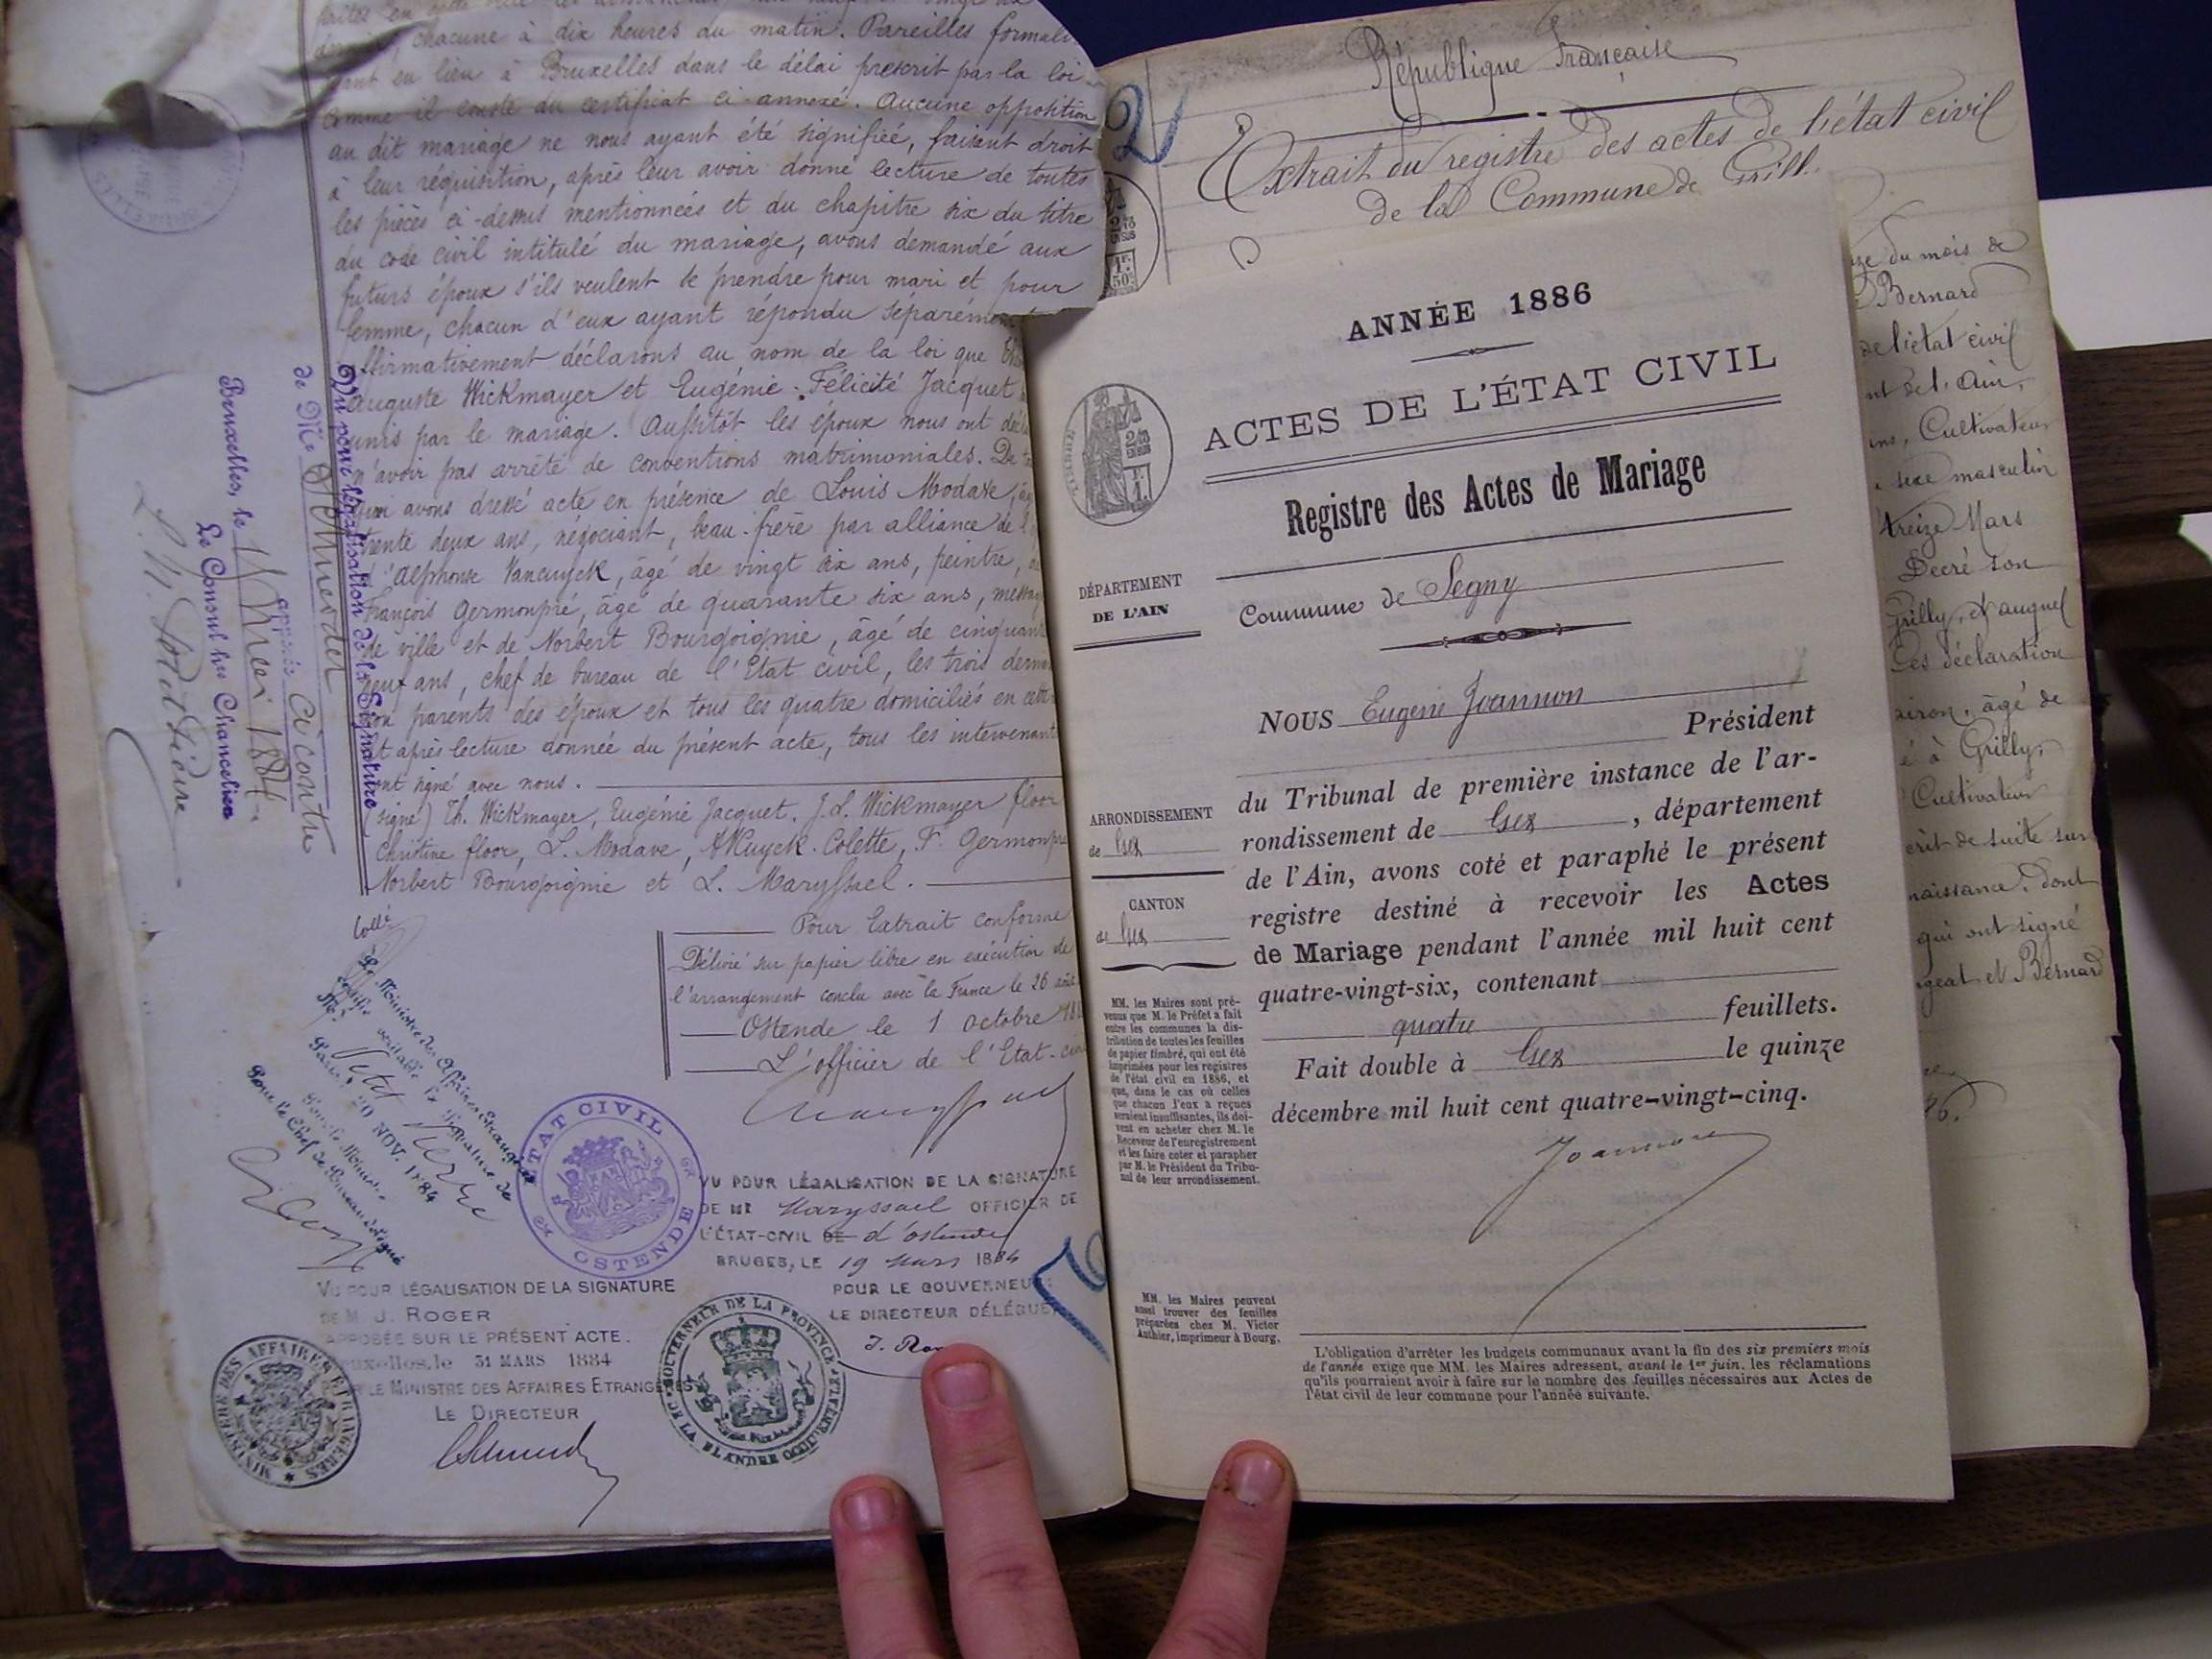 chacune à dix heures du matin. Pareilles formali
ayant eu lieu à Bruxelles dans le délai prescrit par la loi
comme il conste du certificat ci-annexé. Aucune opposition
au dit mariage ne nous ayant été signifiée, faisant droit
à leur réquisition, après leur avoir donné lecture de toutes
les pièces ci-dessus mentionnées et du chapitre six du titre
du code civil intitulé du mariage, avons demandé aux
futurs époux s'ils veulent se prendre pour mari et pour
femme, chacun d'eux ayant répondu séparément
affirmativement déclarons au nom de la loi que
Auguste Wickmayer et Eugénie Félicité Jacquet
unis par le mariage. Aussitôt les époux nous ont décl
n'avoir pas arrêté de conventions matrimoniales. De
avons dressé acte en présence de Louis Modave,
trente deux ans, négociant, beau-frère par alliance de
d'Alphonse Vancuyck, âgé de vingt six ans, peintre,
François Germonpré, âgé de quarante six ans, messag
de ville et de Norbert Bourgoignie, âgé de cinquante
neuf ans, chef de bureau de l'Etat civil, les trois derni
non parents des époux et tous les quatre domiciliés en cette
et après lecture donnée du présent acte, tous les intervenant
ont signé avec nous.
(signé) Th. Wickmayer, Eugénie Jacquet, J. L. Wickmayer floor
Christine floor, L. Modave, AKuyck-Colette, F. Germonpré
Norbert Bourgoignie et L. Maryssael.
Pour Extrait conforme
Délivré sur papier libre en exécution de
l'arrangement conclu avec la France le 26 août
Ostende le 1 octobre 188
L'officier de l'Etat-civ
Vu pour légalisation de la Signature
de Mr
apposée ci contre
Bruxelles, le
1884
Le Consul hre Chancelier
Le Ministre des Affaires Etrangères
20 NOV. 1884
Pour le Ministre
Pour le Chef de Bureau délégué
ETAT CIVIL
OSTENDE
VU POUR LÉGALISATION DE LA SIGNATURE
DE MR Maryssael OFFICIER DE
L'ÉTAT-CIVIL DE d'Ostende
BRUGES, LE 19 Mars 1884
POUR LE GOUVERNEUR:
LE DIRECTEUR DÉLÉGUÉ
VU POUR LÉGALISATION DE LA SIGNATURE
DE M. J. ROGER
APPOSÉE SUR LE PRÉSENT ACTE.
Bruxelles, le 31 MARS 1884
POUR LE MINISTRE DES AFFAIRES ETRANGÈRES
LE DIRECTEUR
MINISTÈRE DES AFFAIRES ETRANGÈRES
GOUVERNEUR DE LA PROVINCE DE LA FLANDRE OCCIDENTALE
République Française
Extrait du registre des actes de l'état civil
de la Commune de Grill
ANNÉE 1886
ACTES DE L'ÉTAT CIVIL
Registre des Actes de Mariage
DÉPARTEMENT
DE L'AIN
Commune de Segny
NOUS Eugène Joannon
Président
du Tribunal de première instance de l'ar-
rondissement de Gex, département
de l'Ain, avons coté et paraphé le présent
registre destiné à recevoir les Actes
de Mariage pendant l'année mil huit cent
quatre-vingt-six, contenant
quatre feuillets.
Fait double à Gex le quinze
décembre mil huit cent quatre-vingt-cinq.
Joannon
ARRONDISSEMENT
de Gex
CANTON
de Gex
MM. les Maires sont pré-
venus que M. le Préfet a fait
entre les communes la dis-
tribution de toutes les feuilles
de papier timbré, qui ont été
imprimées pour les registres
de l'état civil en 1886, et
que, dans le cas où celles
que chacun d'eux a reçues
seraient insuffisantes, ils doi-
vent en acheter chez M. le
Receveur de l'enregistrement
et les faire coter et parapher
par M. le Président du Tribu-
nal de leur arrondissement.
MM. les Maires peuvent
aussi trouver des feuilles
préparées chez M. Victor
Authier, imprimeur à Bourg.
L'obligation d'arrêter les budgets communaux avant la fin des six premiers mois
de l'année exige que MM. les Maires adressent, avant le 1er juin, les réclamations
qu'ils pourraient avoir à faire sur le nombre des feuilles nécessaires aux Actes de
l'état civil de leur commune pour l'année suivante.
du mois de
Bernard
de l'état civil
de l'Ain,
Cultivateur
sexe masculin
treize Mars
Déeré son
Grilly, et auquel
Ces déclaration
âgé de
à Grilly,
Cultivateur
de suite sur
naissance, dont
qui ont signé
et Bernard